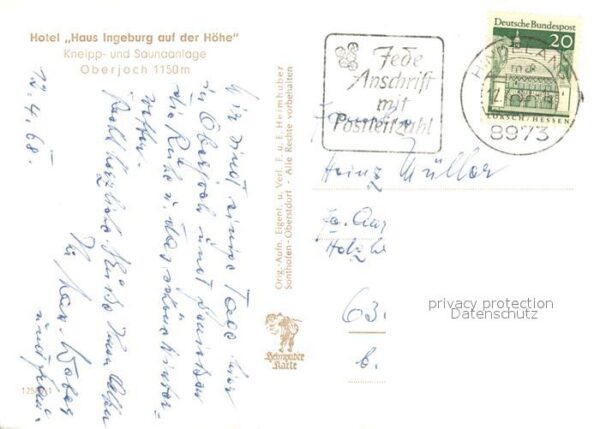 Hotel „Haus Ingeburg auf der Höhe"
Kneipp- und Saunaanlage
Oberjoch 1150m
12.4.68.
Wir sind einige Tage hier
in Oberjoch und genießen
die Ruhe u. das schöne Winter-
wetter.
Recht herzliche Grüße Ihnen allen
Ihr Max Weber
und Frau.
Orig.-Aufn. Eigent. u. Verl. F. u. E. Heimhuber
Sonthofen-Oberstdorf - Alle Rechte vorbehalten
Heimhuber
Karte
Jede
Anschrift
mit
Postleitzahl
Deutsche Bundespost
20
LORSCH/HESSEN
HINDELANG
8973
Heinz Müller
63
b.
privacy protection
Datenschutz